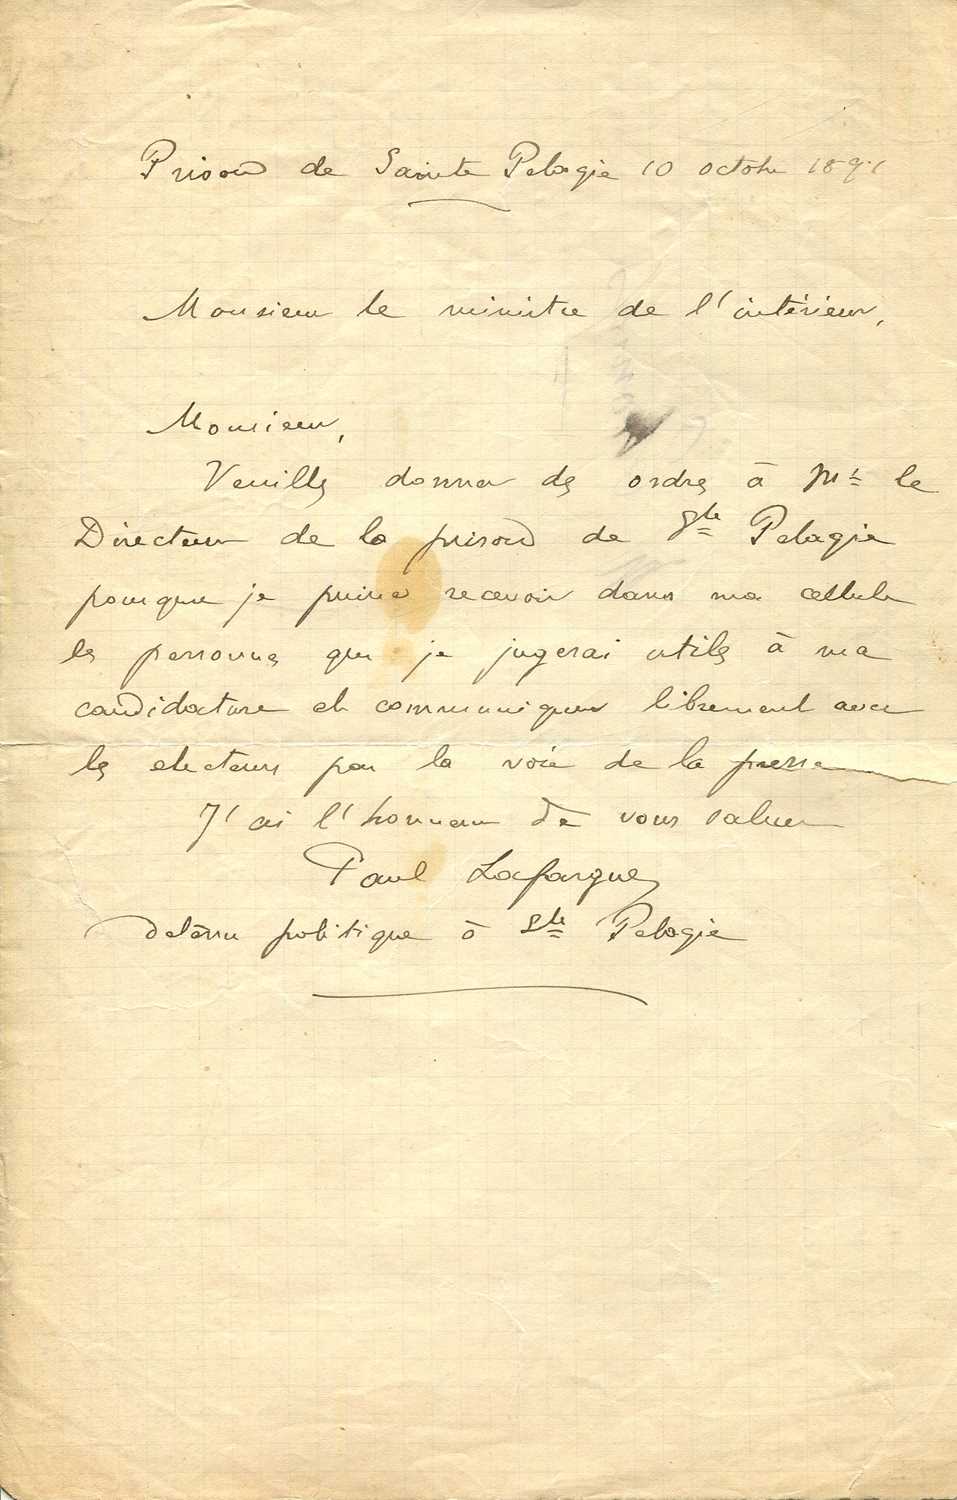 Prison de Sainte Pelagie 10 octobre 1891
Monsieur le ministre de l'intérieur,
Monsieur,
Veuillez donner des ordres à Mr le
Directeur de la prison de Ste Pelagie
pour que je puisse recevoir dans ma cellule
les personnes que je jugerai utiles à ma
candidature et communiquer librement avec
les electeurs par la voie de la presse
J'ai l'honneur de vous saluer
Paul Lafargue
detenu politique à Ste Pelagie